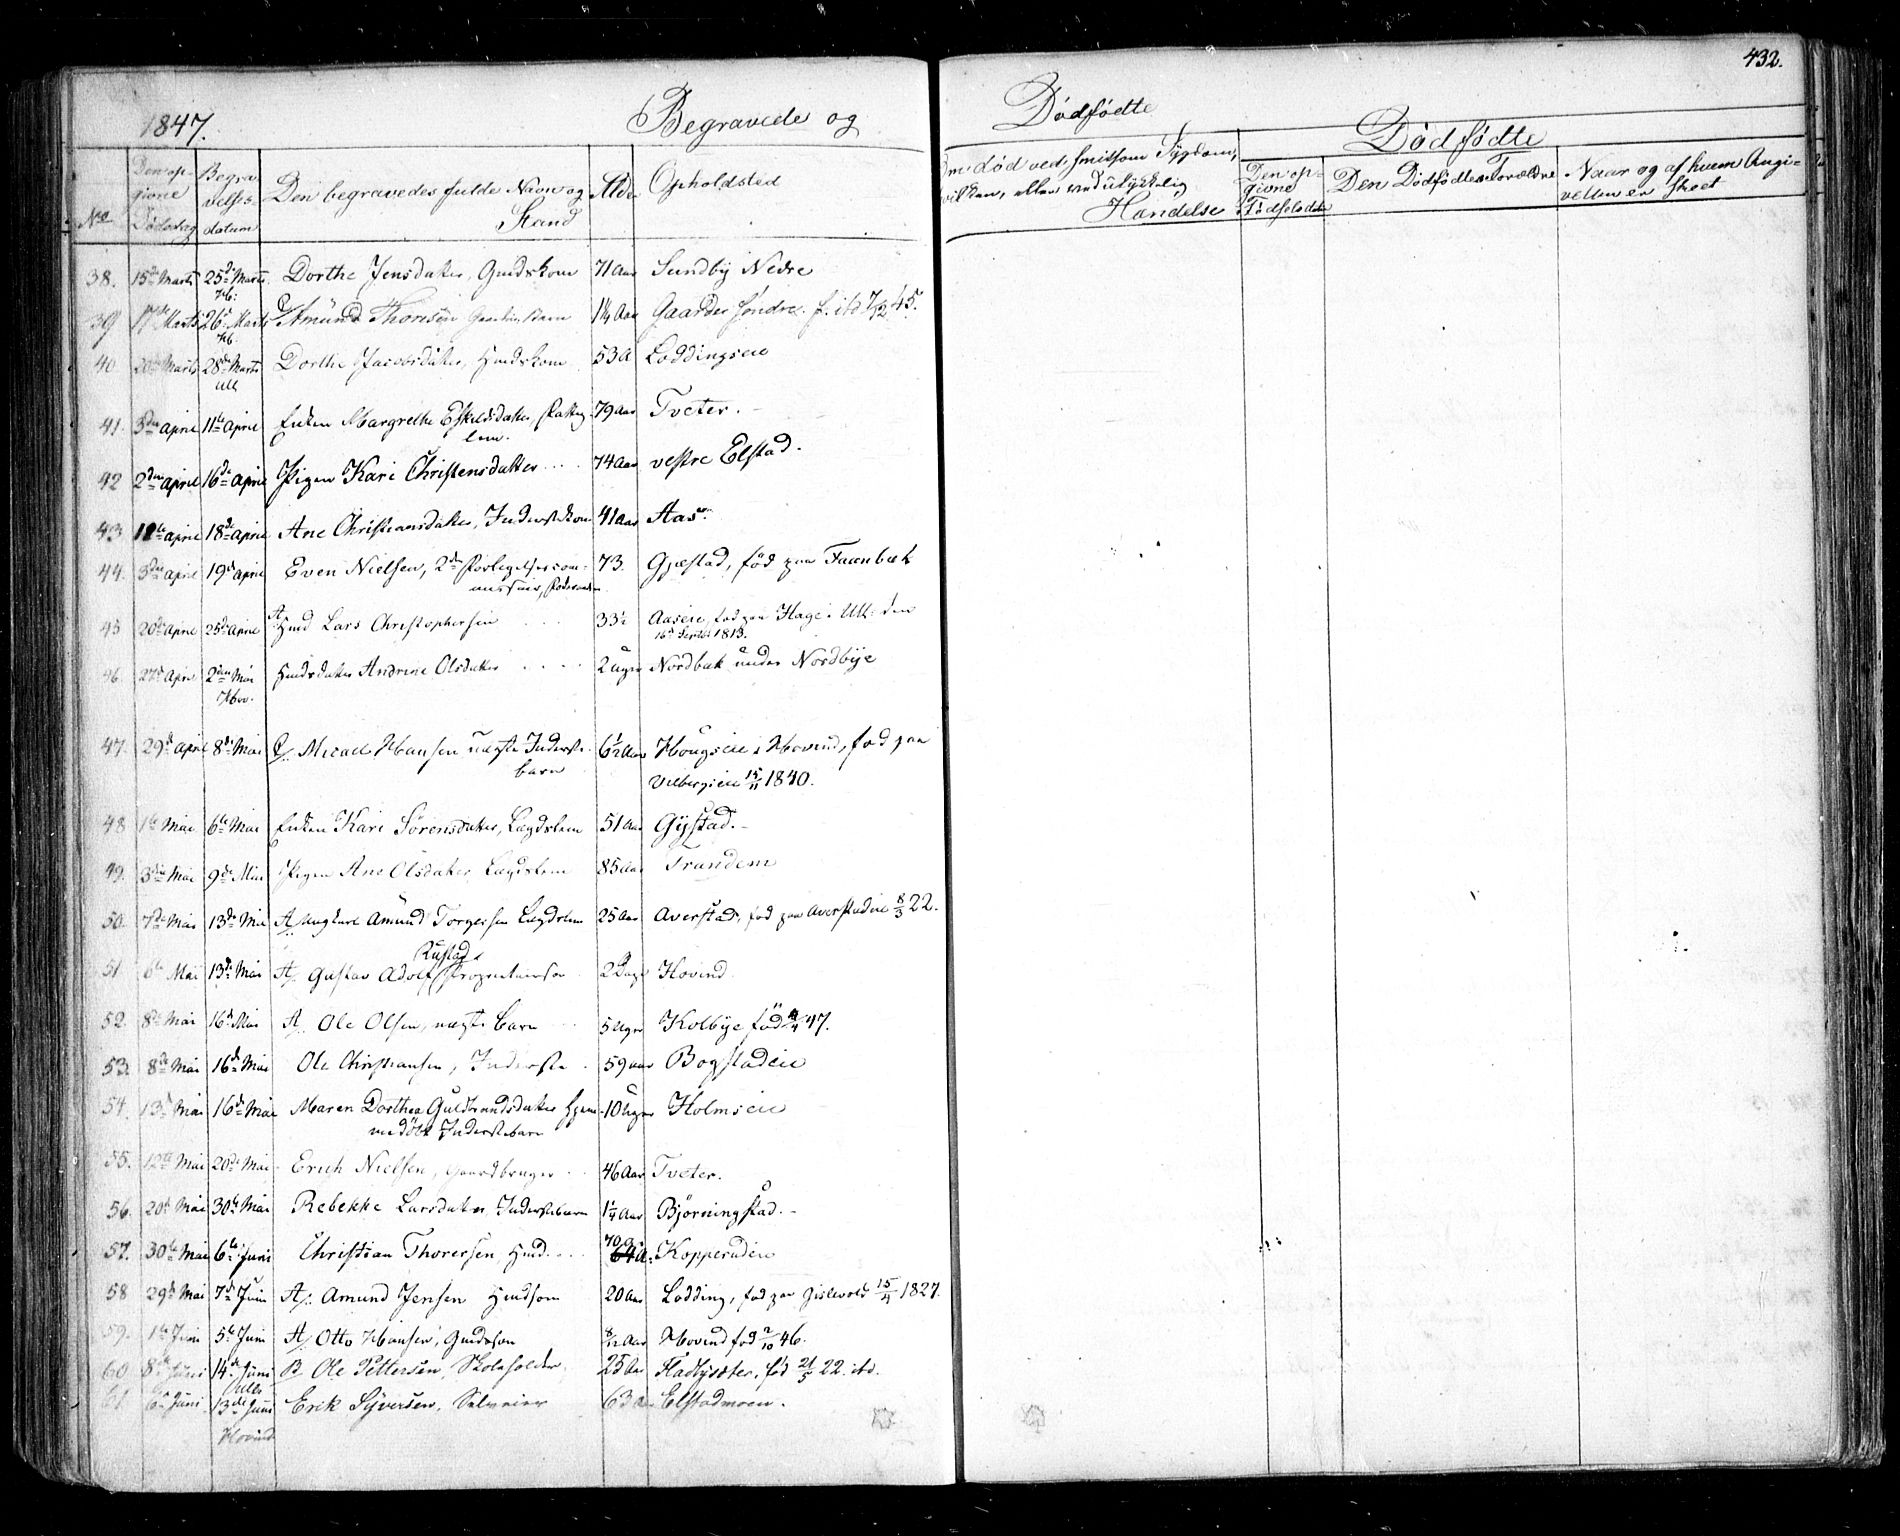 432.
1847.
Begravede og
Dødfødte
Dødfødte
No
Den opgivne Dødsdag
Begravelsesdatum
Den begravedes fulde Navn og Stand
Alder
Opholdsted
Om død ved smitsom Sygdom, hvilken, eller ved ulykkelig Hændelse
Den opgivne Fødselsdatum
Den Dødfødtes Forældre
Naar og af hvem Angivelsen er skeet
38. 15de Marts 25de Marts Dorthe Jensdatter, Gmdskone 71 Aar Sundby Nedre
39 Marts 26 Marts Amund Thoresen 1¼ Aar Gaarder søndre. f. ibd 7/12 45.
40 20de Marts 28de Marts Ull Dorthe Jacobsdatter, Hmdskone 53 A Loddingseie
41. 3die April 11te April Enken Margrethe Eskildsdatter, 79 Aar Tveter.
lem.
42 2den April 16de April Pigen Kari Christensdatter 74 Aar vestre Elstad.
43 April 18de April Ane Christiansdatter, Inderstkone 41 Aar Aas
44. 3die April 19de April Even Nielsen, 2den Forligelsescom- 73. Gjestad, fød paa Faanbæk
missair,
45 20de April 25de April A Hmd Lars Christophersen 33½ Aaseie, fød paa Hage i Ull: den
16de Septbr 1813.
46. 27de April 2den Mai Hov. Hmdsdatter Andrine Olsdatter 2 Uger Nordbæk under Nordbye
47. 29de April 8de Mai Micael Hansen uægte Inderste- 6½ Aar Hougseie i Hovind, fød paa
barn Vilbergseie 15/11 1840.
48 1ste Mai 6te Mai Enken Kari Sörensdatter, Lægdslem 51 Aar Gystad.
49. 3die Mai 9de Mai Pigen Ane Olsdatter Lægdslem 85 Aar Trandem
50. 7de Mai 13de Mai A/ Ungkarl Amund Torgersen Lægdslem 25 Aar Averstad, fød paa Averstadeie 8/3 22.
Rustad
51. 6te Mai 13de Mai A/ Gustav Adolf Proprietairsøn 2 Dage Hovind
52. 8de Mai 16de Mai A/ Ole Olsen, uægte Barn 5 Uger Kolbye fød 47.
53. 8de Mai 16de Mai Ole Christiansen, Inderste 59 aar Bogstadeie
54. 13de Mai 16de Mai Maren Dorthea Guldbrandsdatter hjem- 10 Uger Holmseie
medöbt Inderstebarn
55. 12te Mai 20de Mai Erich Nielsen, Gaardbruger 46 Aar Tveter.
56. 20de Mai 30te Mai Rebekke Larsdatter Inderstebarn 1¼ Aar Bjørningstad.
57. 30te Mai 6te Juni Christian Thorersen Hmd. 70 A. Kopperudeie
58 29de Mai 7de Juni A/ Amund Jensen Hmdsøn 20 Aar Lodding, fød paa Gislevold 15/4 1827.
59. 1ste Juni 5te Juni A/ Otto Hansen, Gmdssøn 8/12 Aar Hovind fød 2/10 46.
60 8de Juni 14de Juni Ulls B Ole Pettersen, Skoleholder 25 Aar Fladbysæter, fød 21/5 22. ibd.
61 6te Juni 13de Juni Hovind Erik Syversen, Selveier 63 A Elstadmoen.